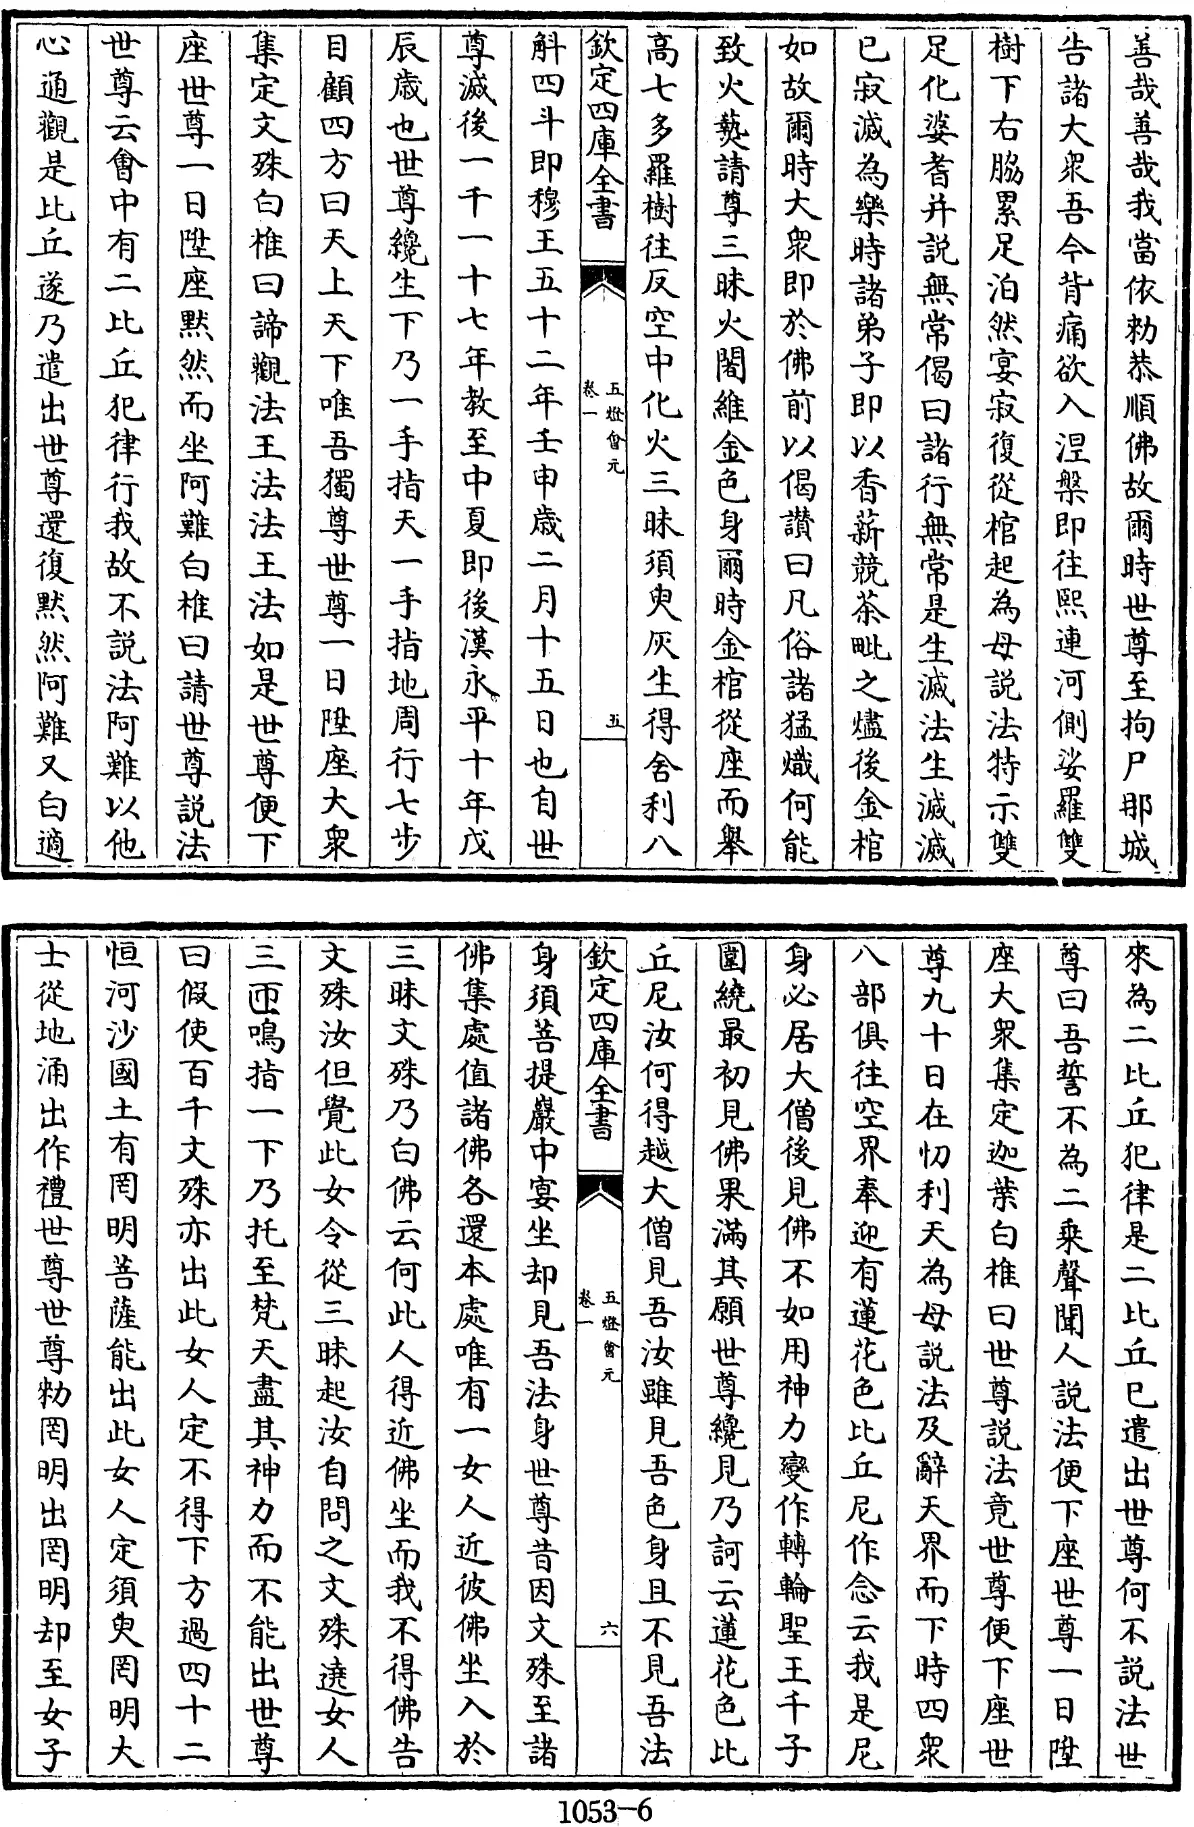 善哉善哉我當依勅恭順佛故爾時世尊至拘尸那城
告諸大衆吾今背痛欲入涅槃即往熙連河側娑羅雙
樹下右脇累足泊然宴寂復從棺起為母説法特示雙
足化婆耆并説無常偈曰諸行無常是生滅法生滅滅
已寂滅為樂時諸弟子即以香薪競茶毗之燼後金棺
如故爾時大衆即於佛前以偈讃曰凡俗諸猛熾何能
致火爇請尊三昧火闍維金色身爾時金棺從座而舉
高七多羅樹往反空中化火三昧須臾灰生得舍利八
欽定四庫全書
五燈會元
卷一
五
斛四斗即穆王五十二年壬申歳二月十五日也自世
尊滅後一千一十七年教至中夏即後漢永平十年戊
辰歳也世尊纔生下乃一手指天一手指地周行七步
目顧四方曰天上天下唯吾獨尊世尊一日陞座大衆
集定文殊白椎曰諦觀法王法法王法如是世尊便下
座世尊一日陞座黙然而坐阿難白椎曰請世尊説法
世尊云會中有二比丘犯律行我故不説法阿難以他
心通觀是比丘遂乃遣出世尊還復黙然阿難又白適
來為二比丘犯律是二比丘已遣出世尊何不説法世
尊曰吾誓不為二乘聲聞人説法便下座世尊一日陞
座大衆集定迦葉白椎曰世尊説法竟世尊便下座世
尊九十日在忉利天為母説法及辭天界而下時四衆
八部俱往空界奉迎有蓮花色比丘尼作念云我是尼
身必居大僧後見佛不如用神力變作轉輪聖王千子
圍繞最初見佛果滿其願世尊纔見乃訶云蓮花色比
丘尼汝何得越大僧見吾汝雖見吾色身且不見吾法
欽定四庫全書
五燈會元
卷一
六
身須菩提巖中宴坐却見吾法身世尊昔因文殊至諸
佛集處值諸佛各還本處唯有一女人近彼佛坐入於
三昧文殊乃白佛云何此人得近佛坐而我不得佛告
文殊汝但覺此女令從三昧起汝自問之文殊遶女人
三匝鳴指一下乃托至梵天盡其神力而不能出世尊
曰假使百千文殊亦出此女人定不得下方過四十二
恒河沙國土有罔明菩薩能出此女人定須臾罔明大
士從地涌出作禮世尊世尊勅罔明出罔明却至女子
1053-6